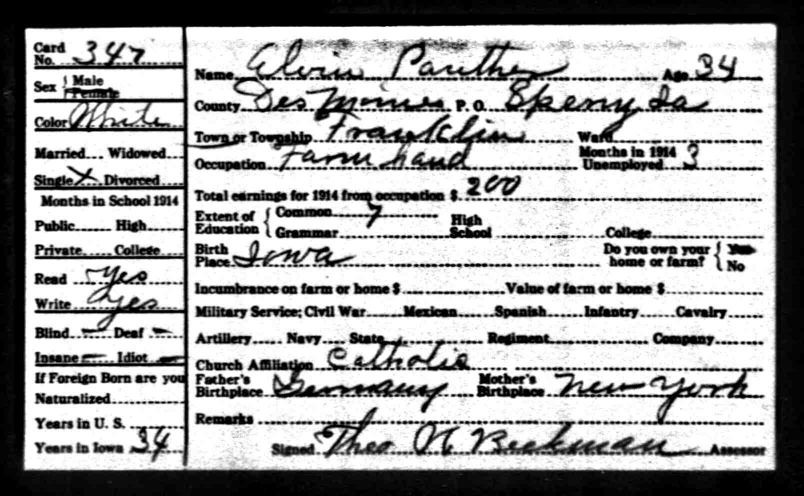 Card No. 347
Sex { Male Female
Color White
Married Widowed
Single X Divorced
Months in School 1914
Public High
Private College
Read Yes
Write Yes
Blind – Deaf –
Insane – Idiot –
If Foreign Born are you
Naturalized
Years in U. S.
Years in Iowa 34
Name Elvin Panther Age 34
County Des Moines P. O. Sperry Ia
Town or Township Franklin Ward
Occupation Farm hand Months in 1914 Unemployed 3
Total earnings for 1914 from occupation $ 200
Extent of Education { Common 7 High School
Grammar College
Birth Place Iowa Do you own your home or farm? { Yes No
Incumbrance on farm or home $ Value of farm or home $
Military Service: Civil War Mexican Spanish Infantry Cavalry
Artillery Navy State Regiment Company
Church Affiliation Catholic
Father's Birthplace Germany Mother's Birthplace New York
Remarks
Signed Theo H Beckman Assessor